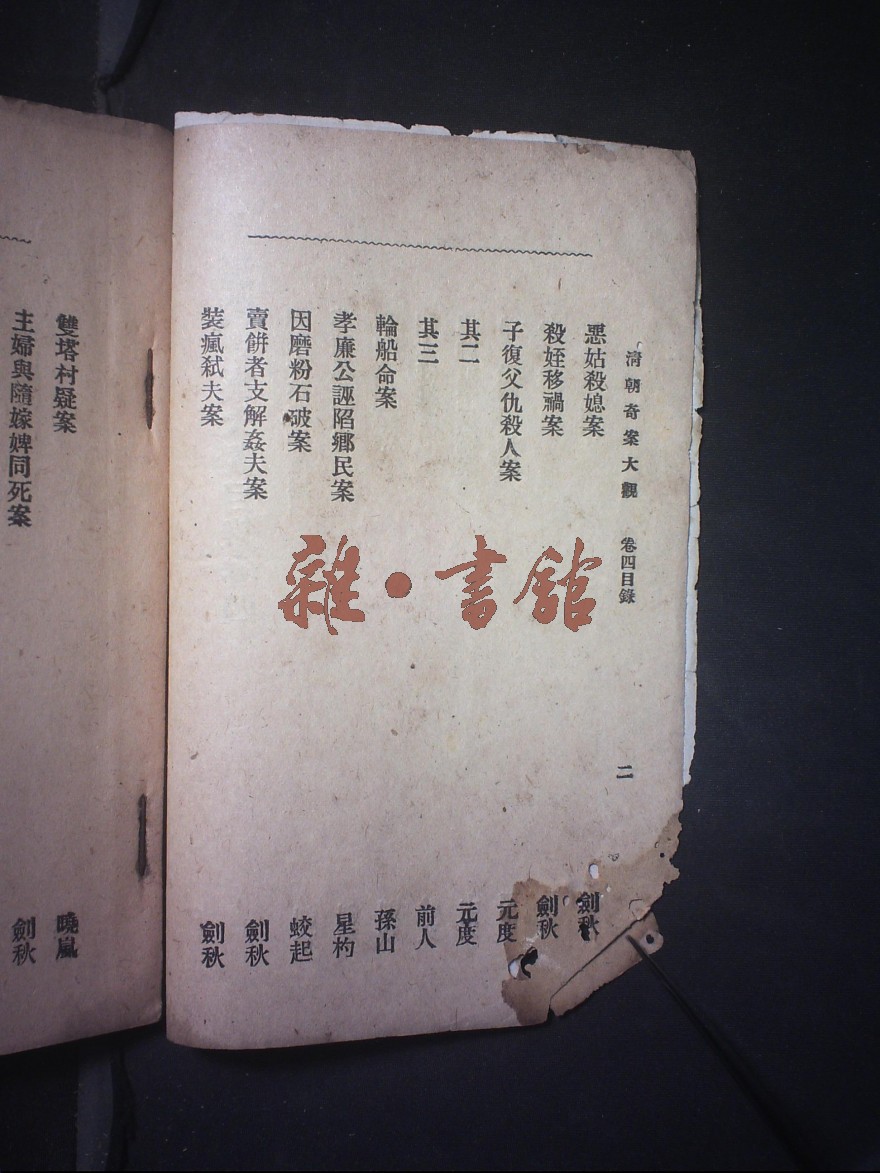 清朝奇案大觀 卷四目錄 二
惡姑殺媳案 劍秋
殺姪移禍案 劍秋
子復父仇殺人案 元度
其二 元度
其三 前人
輪船命案 孫山
孝廉公誣陷鄉民案 星杓
因磨粉石破案 蛟起
賣餅者支解姦夫案 劍秋
裝瘋弒夫案 劍秋
雙塔村疑案 曉嵐
主婦與隨嫁婢同死案 劍秋
雜·書館